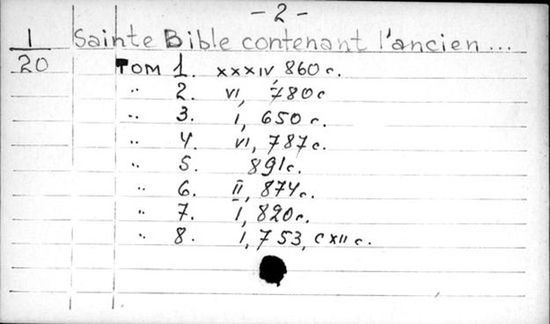 - 2 -
1 Sainte Bible contenant l'ancien ...
20 Том 1. XXXIV, 860 с.
" 2. VI, 780 с
" 3. I, 650 с.
" 4. VI, 787 с.
" 5. 891 с.
" 6. II, 874 с.
" 7. I, 820 с.
" 8. I, 753, CXII с.